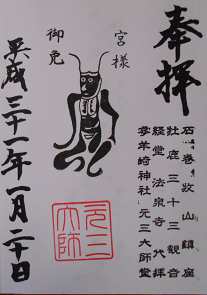 奉拝
石巻牧山鎮座
牡鹿三十三観音
経堂法泉寺代拝
零羊崎神社元三大師堂
宮様
御免
平成三十一年一月二十日
元三
大師